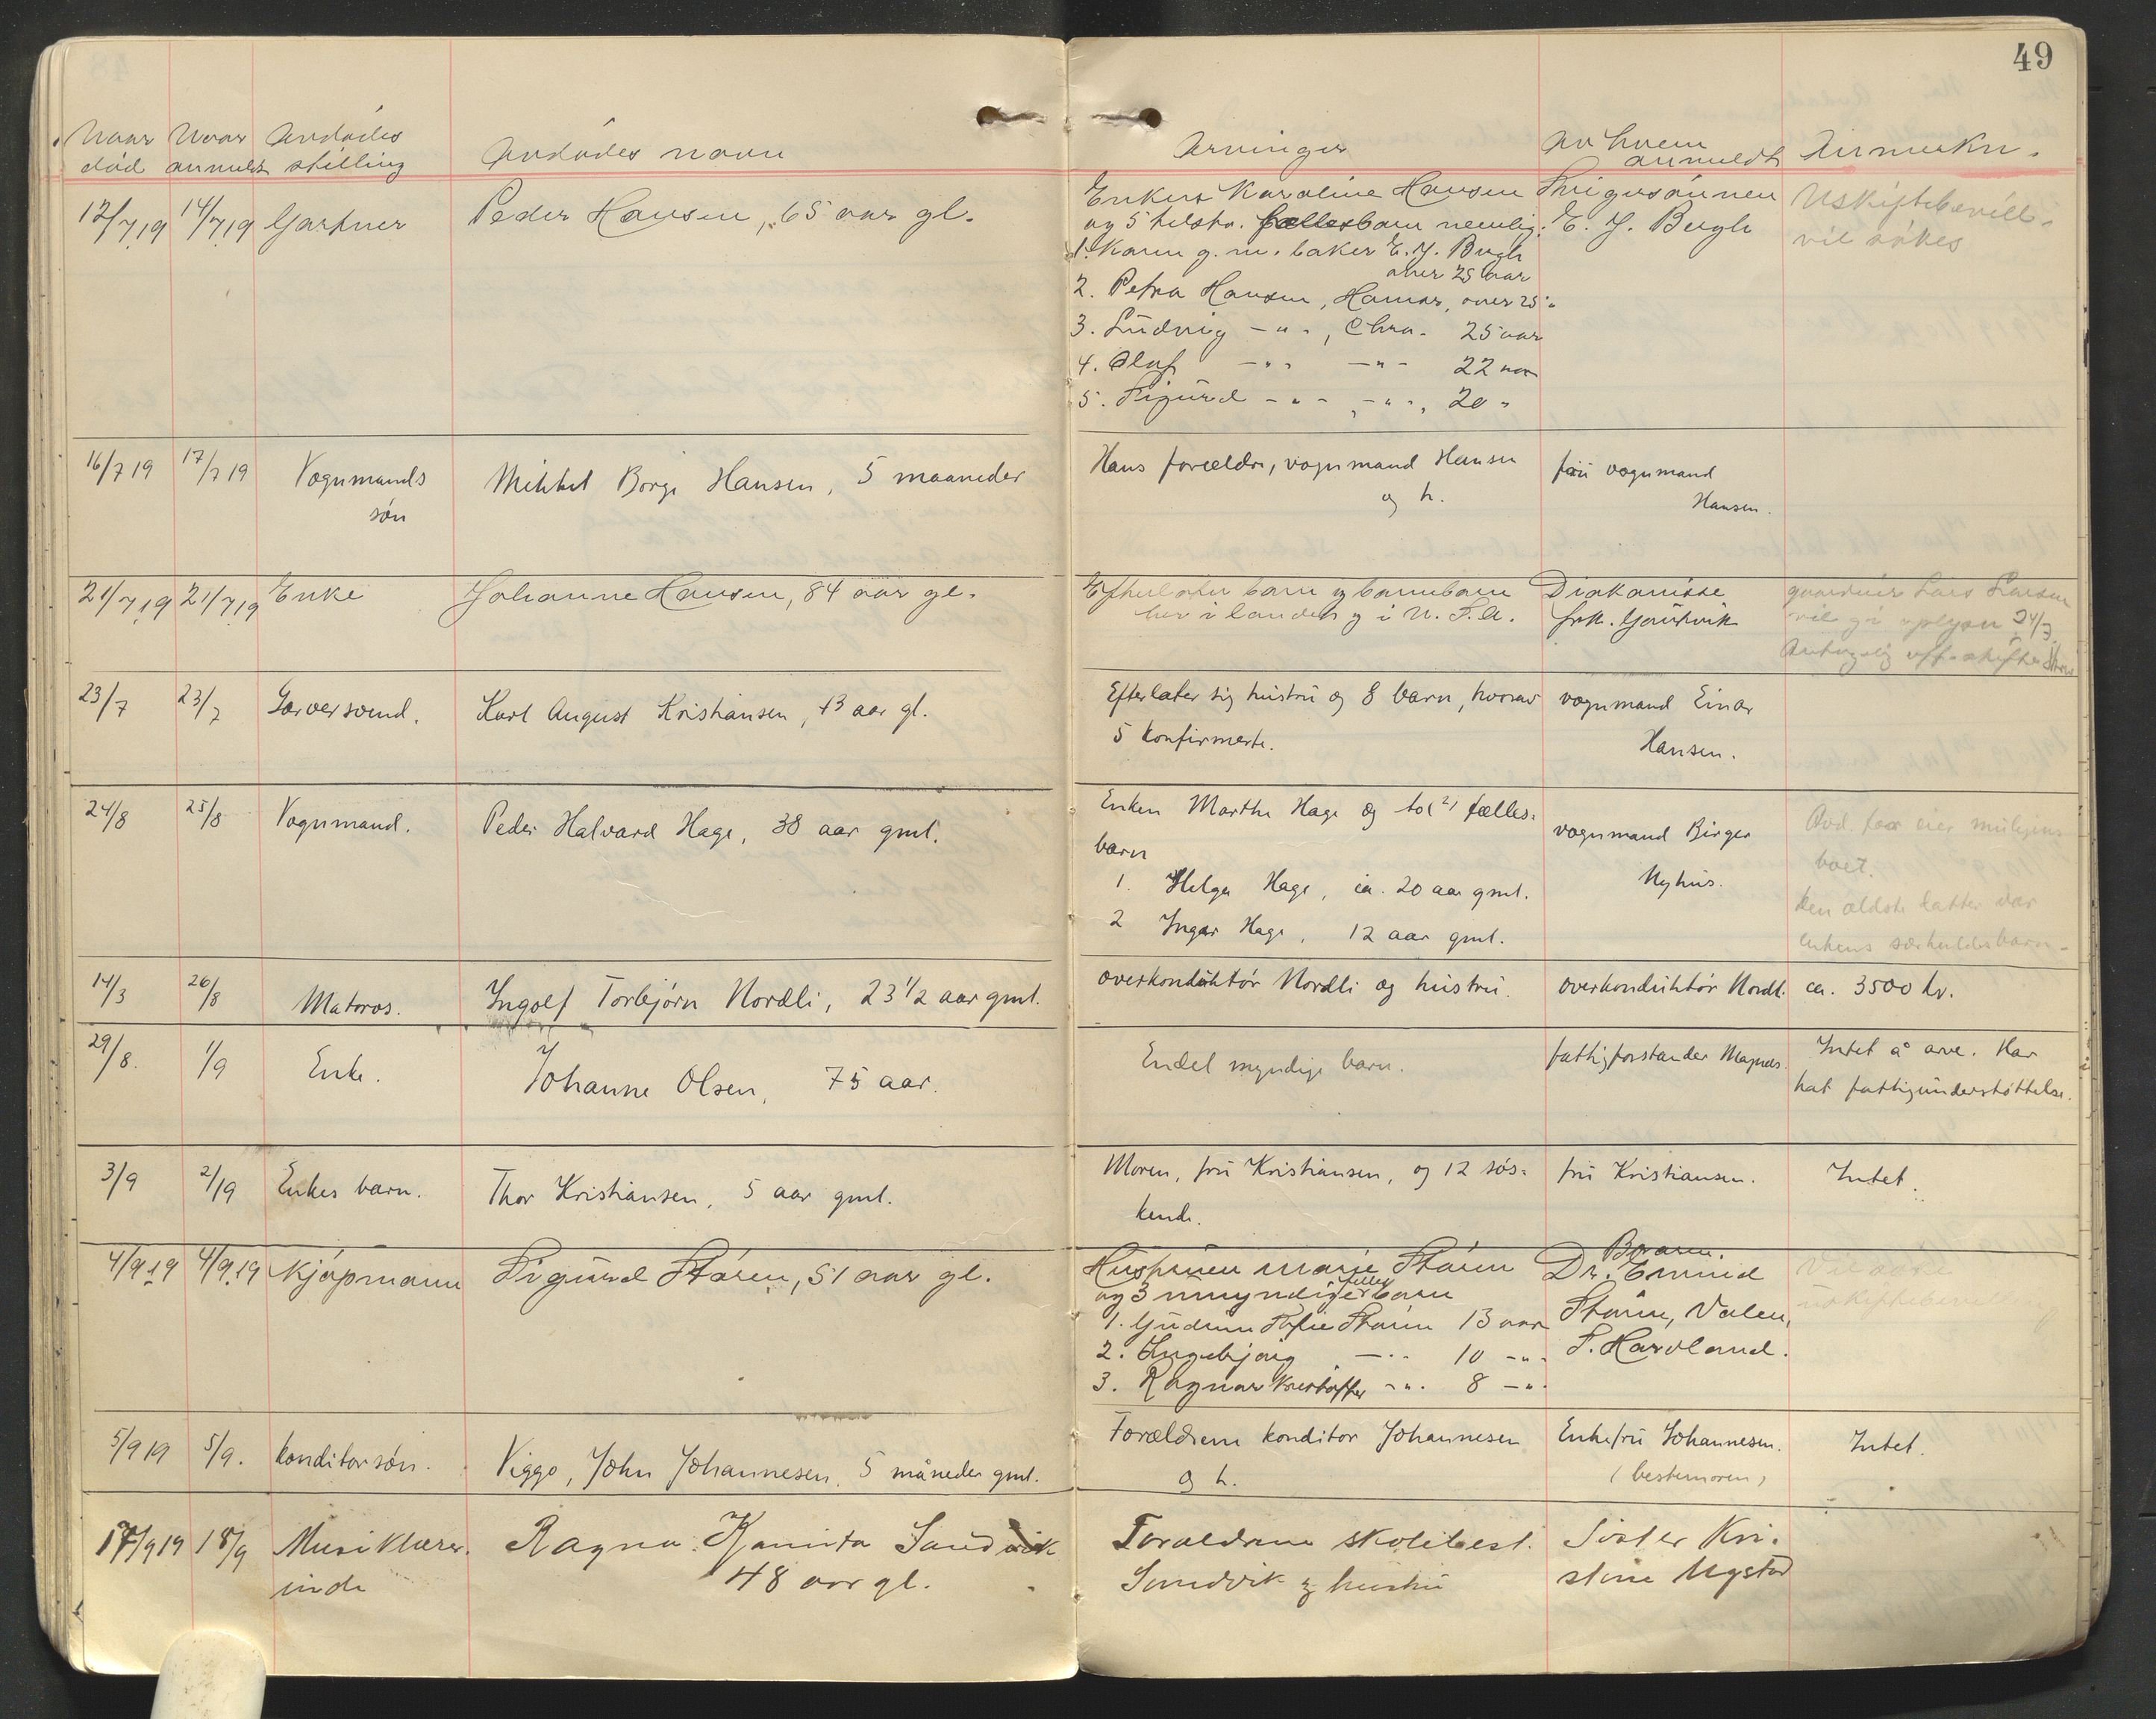 49
Naar død
Naar anmeldt
Avdødes stilling
Avdødes navn
Arvinger
Av hvem anmeldt
Anmerkn.
12/7 19 14/7 19 Gartner Peder Hansen, 65 aar gl.
Enken Karoline Hansen
og 5 felles barn nemlig:
1. Karen g. m. baker E. J. Bergh
over 25 aar
2. Petra Hansen, Hamar, over 25 "
3. Ludvig - " - , Chra. 25 aar
4. Olaf - " - - " - 22 aar
5. Sigurd - " - , - " - , 20 "
Svigersønnen
E. J. Bergh
Uskiftebevill.
vil søkes
16/7 19 17/7 19 Vognmands
søn
Mikkel Borge Hansen, 5 maaneder
Hans forældre, vognmand Hansen
og h.
fru vognmand
Hansen.
21/7 19 21/7 19 Enke Johanne Hansen, 84 aar gl.
Efterlater barn og barnebarn
her i landet og i U. S. A.
Diakonisse
frk.
gaardeier Lars Larsen
vil gi oplysn 24/7.
23/7 23/7 Garversvend. Karl August Kristiansen, 43 aar gl.
Efterlater sig hustru og 8 barn, hvorav
5 konfirmerte.
vognmand Einar
Hansen.
24/8 25/8 Vognmand. Peder Halvard Hage, 38 aar gml.
Enken Marthe Hage og to (2) fælles-
barn
1. Helga Hage, ca. 20 aar gml.
2 Ingar Hage, 12 aar gml.
vognmand Birger
Nyhus.
Avd. far eier muligens
boet.
Den ældste datter var
enkens særkuldsbarn.
14/3 26/8 Matros. Ingolf Torbjørn Nordli, 23 1/2 aar gml.
overkonduktør Nordli og hustru.
overkonduktør Nordli.
ca. 3500 kr.
29/8. 1/9 Enke. Johanne Olsen, 75 aar.
Endel myndige barn.
fattigforstander Magnus.
Intet å arve. Har
hat fattigunderstøttelse.
3/9 2/19 Enkes barn. Thor Kristiansen, 5 aar gml.
Moren, fru Kristiansen, og 12 søs-
kende.
fru Kristiansen.
Intet.
4/9 19 4/9 19 Kjøpmann Sigurd Støren, 51 aar gl.
Hustruen Marie Støren
og 3 umyndige felles barn
1. Gudrun Sofie Støren 13 aar
2. Ingebjørg - " - 10 - " -
3. Ragnar Kristoffer - " - 8 - " -
Broren.
Dr. Emund
Støren, Valen,
S. Hordland.
Vil søke
uskiftebevil
5/9 19 5/9. konditorsøn. Viggo, John Johannesen, 5 måneder gml.
Forældrene konditor Johannesen
og h.
Enkefru Johannesen.
(bestemoren)
Intet.
17/9 19 18/9 Musiklærer-
inde
Ragna Kamita Sandvik
48 aar gl.
Forældrene skolebest.
Sandvik og hustru
Søster Kri-
stine Nystad